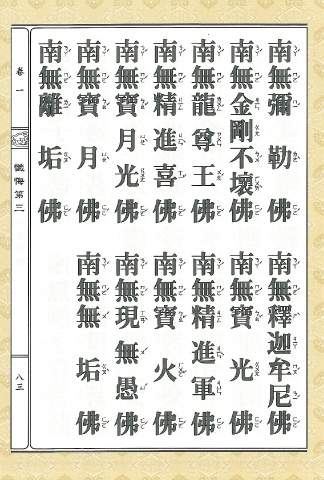 南無彌勒佛
南無釋迦牟尼佛
南無金剛不壞佛
南無寶光佛
南無龍尊王佛
南無精進軍佛
南無精進喜佛
南無寶火佛
南無寶月光佛
南無現無愚佛
南無寶月佛
南無無垢佛
南無離垢佛
卷一
懺悔第三
八三